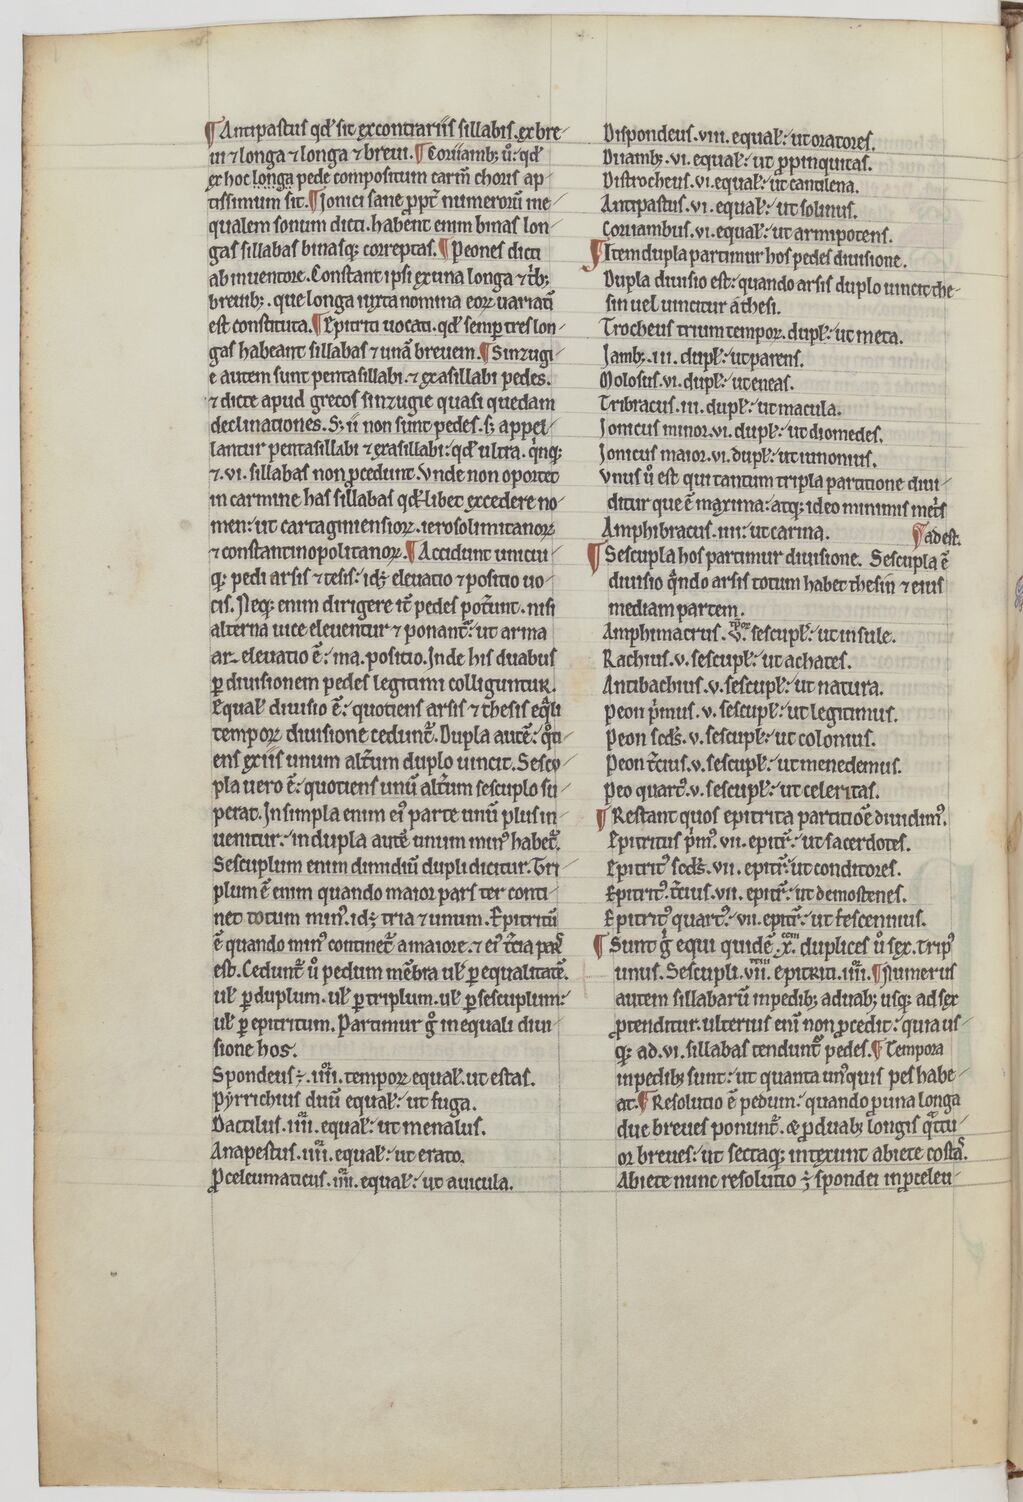 ¶Antipastus qđ sit excontrariis sillabis. ex bre-
ui ⁊ longa ⁊ longa ⁊ breui. ¶Coriiamb; ů: qđ
ex hoc longa pede compositum carm̄ choris ap-
tissimum sit. ¶Jonici sane ꝓpt̄ numeroꝝ ine-
qualem sonum dicti. habent enim binas lon-
gas sillabas binasq; correptas. ¶Peones dicti
ab inuentore. Constant ipsi ex una longa ⁊ t̄b;
breuib;. que longa iuxta nomina eoꝝ uariati
est constituta. ¶Epitriti uocati. qđ semp̄ tres lon-
gas habeant sillabas ⁊ unā breuem. ¶Sinzugi-
e autem sunt pentasillabi. ⁊ exasillabi pedes.
⁊ dicte apud grecos sinzugie quasi quedam
declinationes. S; ii non sunt pedes. s; appel-
lantur pentasillabi ⁊ exasillabi: qđ ultra. q̇nq;
⁊. vi. sillabas non ꝓcedunt. Vnde non oportet
in carmine has sillabas qđ-libet excedere no-
men: ut cartaginensioꝝ. ierosolimitanoꝝ
⁊ constantinopolitanoꝝ. ¶Accidunt unicui-
q; pedi arsis ⁊ tesis: id; eleuatio ⁊ positio uo-
cis. Neq; enim dirigere it̄ pedes pot̄unt. nisi
alterna uice eleuentur ⁊ ponant̄: ut arma
ar- eleuatio ē: ma. positio. Inde his duabus
ꝑ diuisionem pedes legitimi colliguntur.
Equal̵ diuisio ē: quotiens arsis ⁊ thesis eq̄li
tempoꝝ diuisione cedunt̄. Dupla autē: q̊ti-
ens ex iis unum alt̄um duplo uincit. Sesco-
pla uero ē: quotiens unū alt̄um sescuplo su-
perat. In simpla enim ei᾽ parte unū plus in-
uenitur: in dupla autē unum min᾽ habet̄.
Sescuplum enim dimidiū dupli dicitur. Tri-
plum ē enim quando maior pars ter conti-
net totum min᾽. id; tria ⁊ unum. Epitritū
ē quando min᾽ continet̄ a maiore. ⁊ ei᾽ t̄cia pars
est. Cedunt̄ ů pedum mēbra ul̵ ꝑ equalitatē.
ul̵ ꝑ duplum. ul̵ ꝑ triplum. ul̵ ꝑ sescuplum:
ul̵ ꝑ epitritum. Partimur g̊ in equali diui-
sione hos.
Spondeus ÷. iiii. tempoꝝ equal̵. ut estas.
Pyrrichius duū equal̵: ut fuga.
Dactilus. iiii. equal̵: ut menalus.
Anapestus. iiii. equal̵: ut erato.
Ꝓceleumaticus. iiii. equal̵: ut auicula.
Dispondeus. viii. equal̵: ut oratores.
Diiamb;. vi. equal̵: ut ꝓpinquitas.
Distrocheus. vi. equal̵: ut cantilena.
Antipastus. vi. equal̵: ut solinus.
Coriiambus. vi. equal̵: ut armipotens.
Item dupla partimur hos pedes diuisione.
Dupla diuisio est: quando arsis duplo uincit the-
sin uel uincitur a thesi.
Trocheus trium tempoꝝ. dupl̵: ut meta.
Jamb;. iii. dupl̵: ut parens.
Molosus. vi. dupl̵: ut eneas.
Tribracus. iii. dupl̵: ut macula.
Jonicus minor. vi. dupl̵: ut diomedes.
Jonicus maior. vi. dupl̵: ut iunonius.
Vnus ů est qui tantum tripla partitione diui-
ditur que ē maxima: atq; ideo minimis metris
Amphibracus. iiii: ut carina. ¶adest.
¶Sescupla hos partimur diuisione. Sescupla ē
diuisio q̄ndo arsis totum habet thesin ⁊ eius
mediam partem.
Amphimacrus. v. tempoꝝ sescupl̵: ut insule.
Bachius. v. sescupl̵: ut achates.
Antibachius. v. sescupl̵: ut natura.
Peon p̄mus. v. sescupl̵: ut legitimus.
Peon scds. v. sescupl̵: ut colonius.
Peon t̄cius. v. sescupl̵: ut menedemus.
Peo quart᾽. v. sescupl̵: ut celeritas.
¶Restant quos epitrita partitiōe diuidim᾽.
Epitritus p̄m᾽. vii. epitr̄: ut sacerdotes.
Epitrit᾽ scds. vii. epitr̄: ut conditores.
Epitrit᾽. t̄cius. vii. epitr̄: ut demostenes.
Epitrit᾽ quart᾽: vii. epitr̄: ut fescennius.
¶Sunt g̊ equi quidē. x. duplices ů sex. trip᾽
unus. Sescupli. vii. epitriti. iiii. ¶Numerus
autem sillabarū in pedib; a duab; usq; ad sex
ꝓtenditur. ulterius eni non ꝓcedit: quia us-
q; ad. vi. sillabas tendunt̄ pedes. ¶Tempora
in pedib; sunt: ut quanta un᾽quis pes habe-
at. ¶Resolutio ē pedum: quando ꝓ una longa
due breues ponunt̄. & ꝓ duab; longis q̄ttu-
or breues: ut sectaq; intexunt abiete costas.
Abiete nunc resolutio ÷ spondei in ꝓceleu-